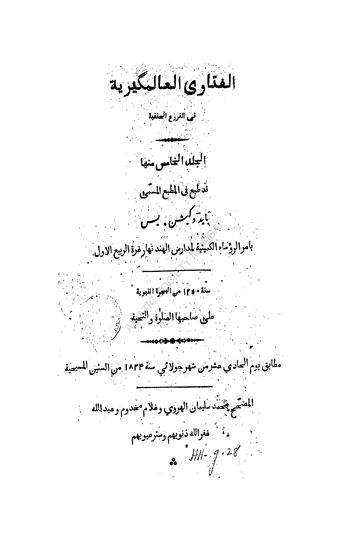 الفتاوى العالمگيرية
فى الفروع الحنفية
المجلد الخامس منها
قد طبع فى المطبع المسمّى
بامر الرؤساء الكميتية لمدارس الهند نهار غرة الربيع الاول
سنة ١٢٥٠ من الهجرة النبوية
على صاحبها الصلوة والتحية
مطابق يوم الحادي عشر من شهر جولائي سنة ١٨٣٤ من السنين المسيحية
المصحح محمد سليمان الهروي وغلام مخدوم وعبد الله
غفر الله ذنوبهم وستر عيوبهم
HH-9-28